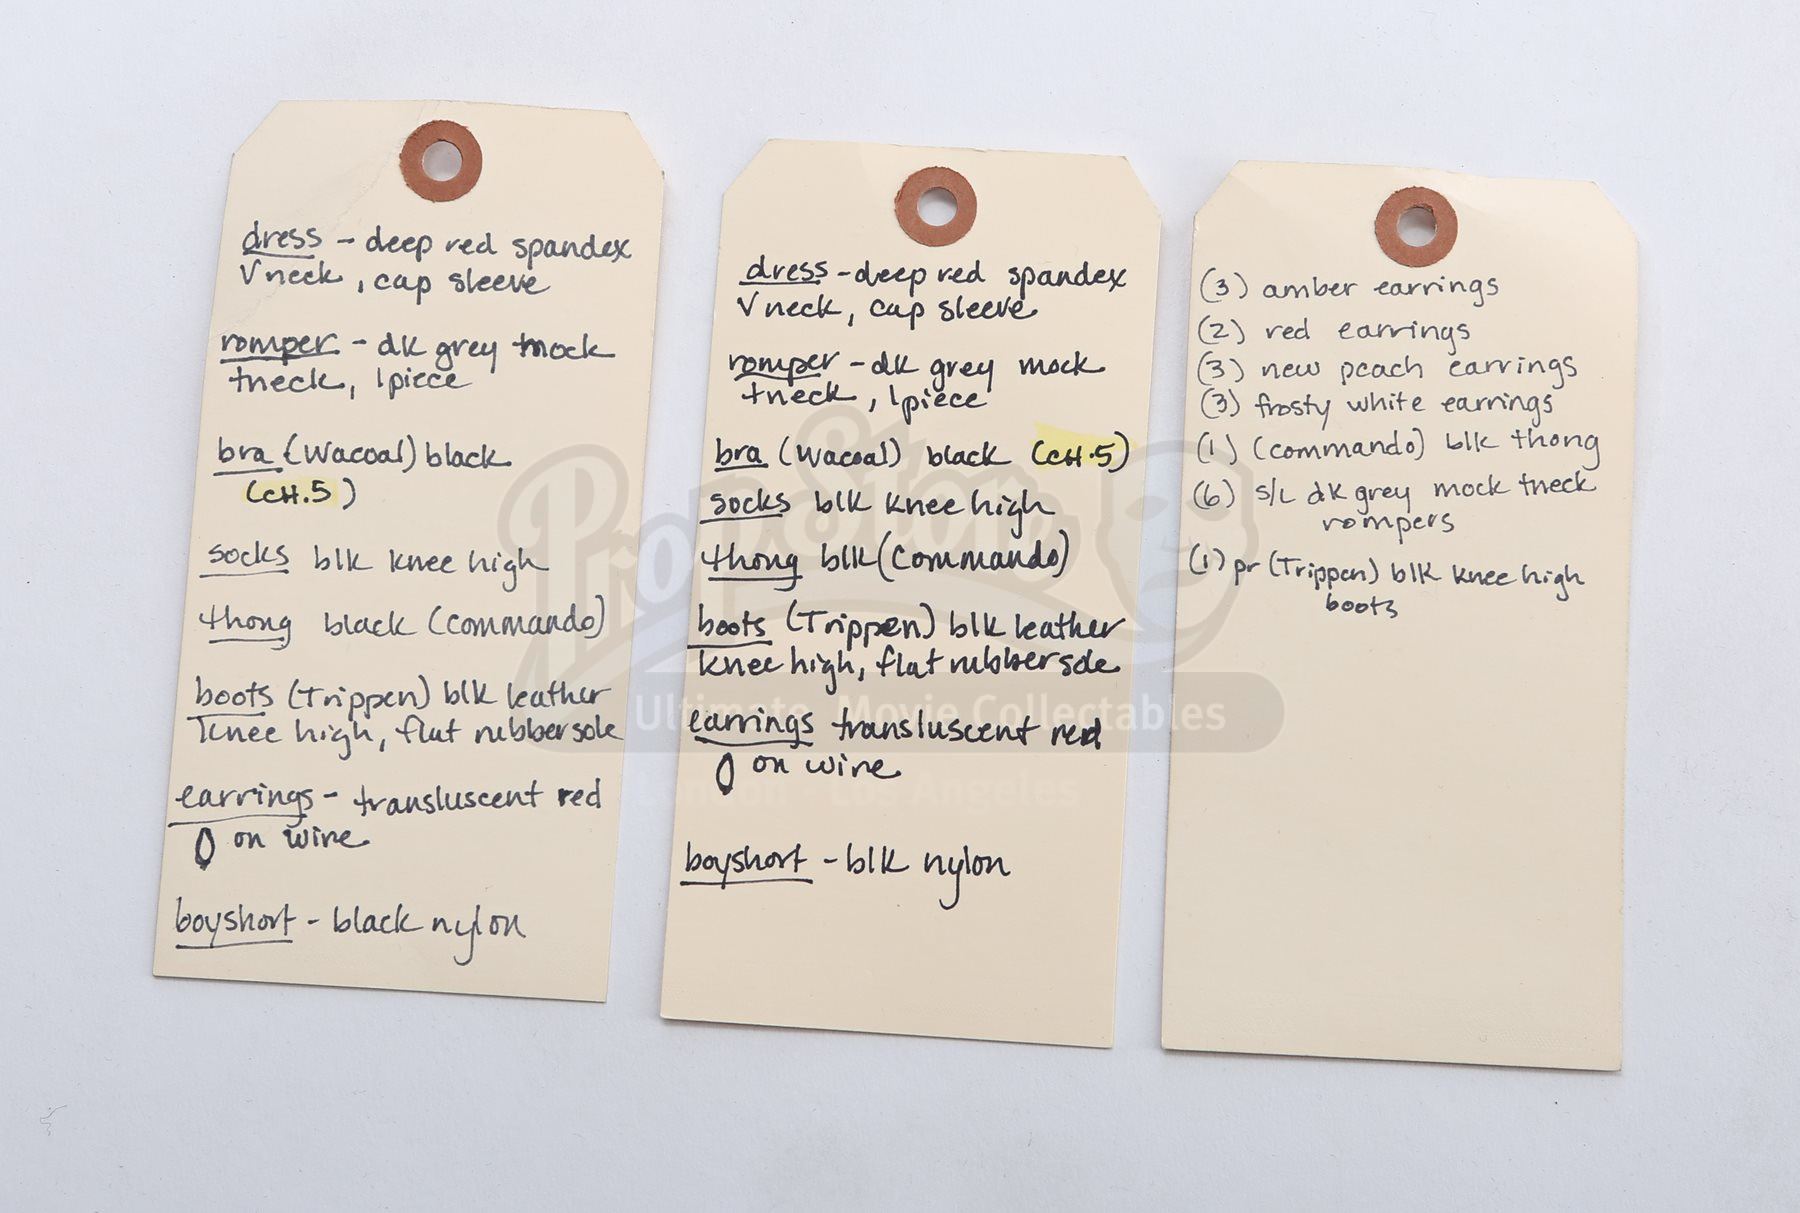 dress - deep red spandex
V neck, cap sleeve
romper - dk grey mock
tneck, 1 piece
bra (Wacoal) black
(CH.5)
socks blk knee high
thong black (commando)
boots (Trippen) blk leather
knee high, flat rubber sole
earrings - transluscent red
0 on wire
boyshort - black nylon
dress - deep red spandex
V neck, cap sleeve
romper - dk grey mock
tneck, 1 piece
bra (Wacoal) black (CH.5)
socks blk knee high
thong blk (Commando)
boots (Trippen) blk leather
knee high, flat rubber sole
earrings transluscent red
0 on wire
boyshort - blk nylon
(3) amber earrings
(2) red earrings
(3) new peach earrings
(3) frosty white earrings
(1) (commando) blk thong
(6) s/L dk grey mock tneck
rompers
(1) pr (Trippen) blk knee high
boots
Prop Store
Ultimate Movie Collectables
London - Los Angeles